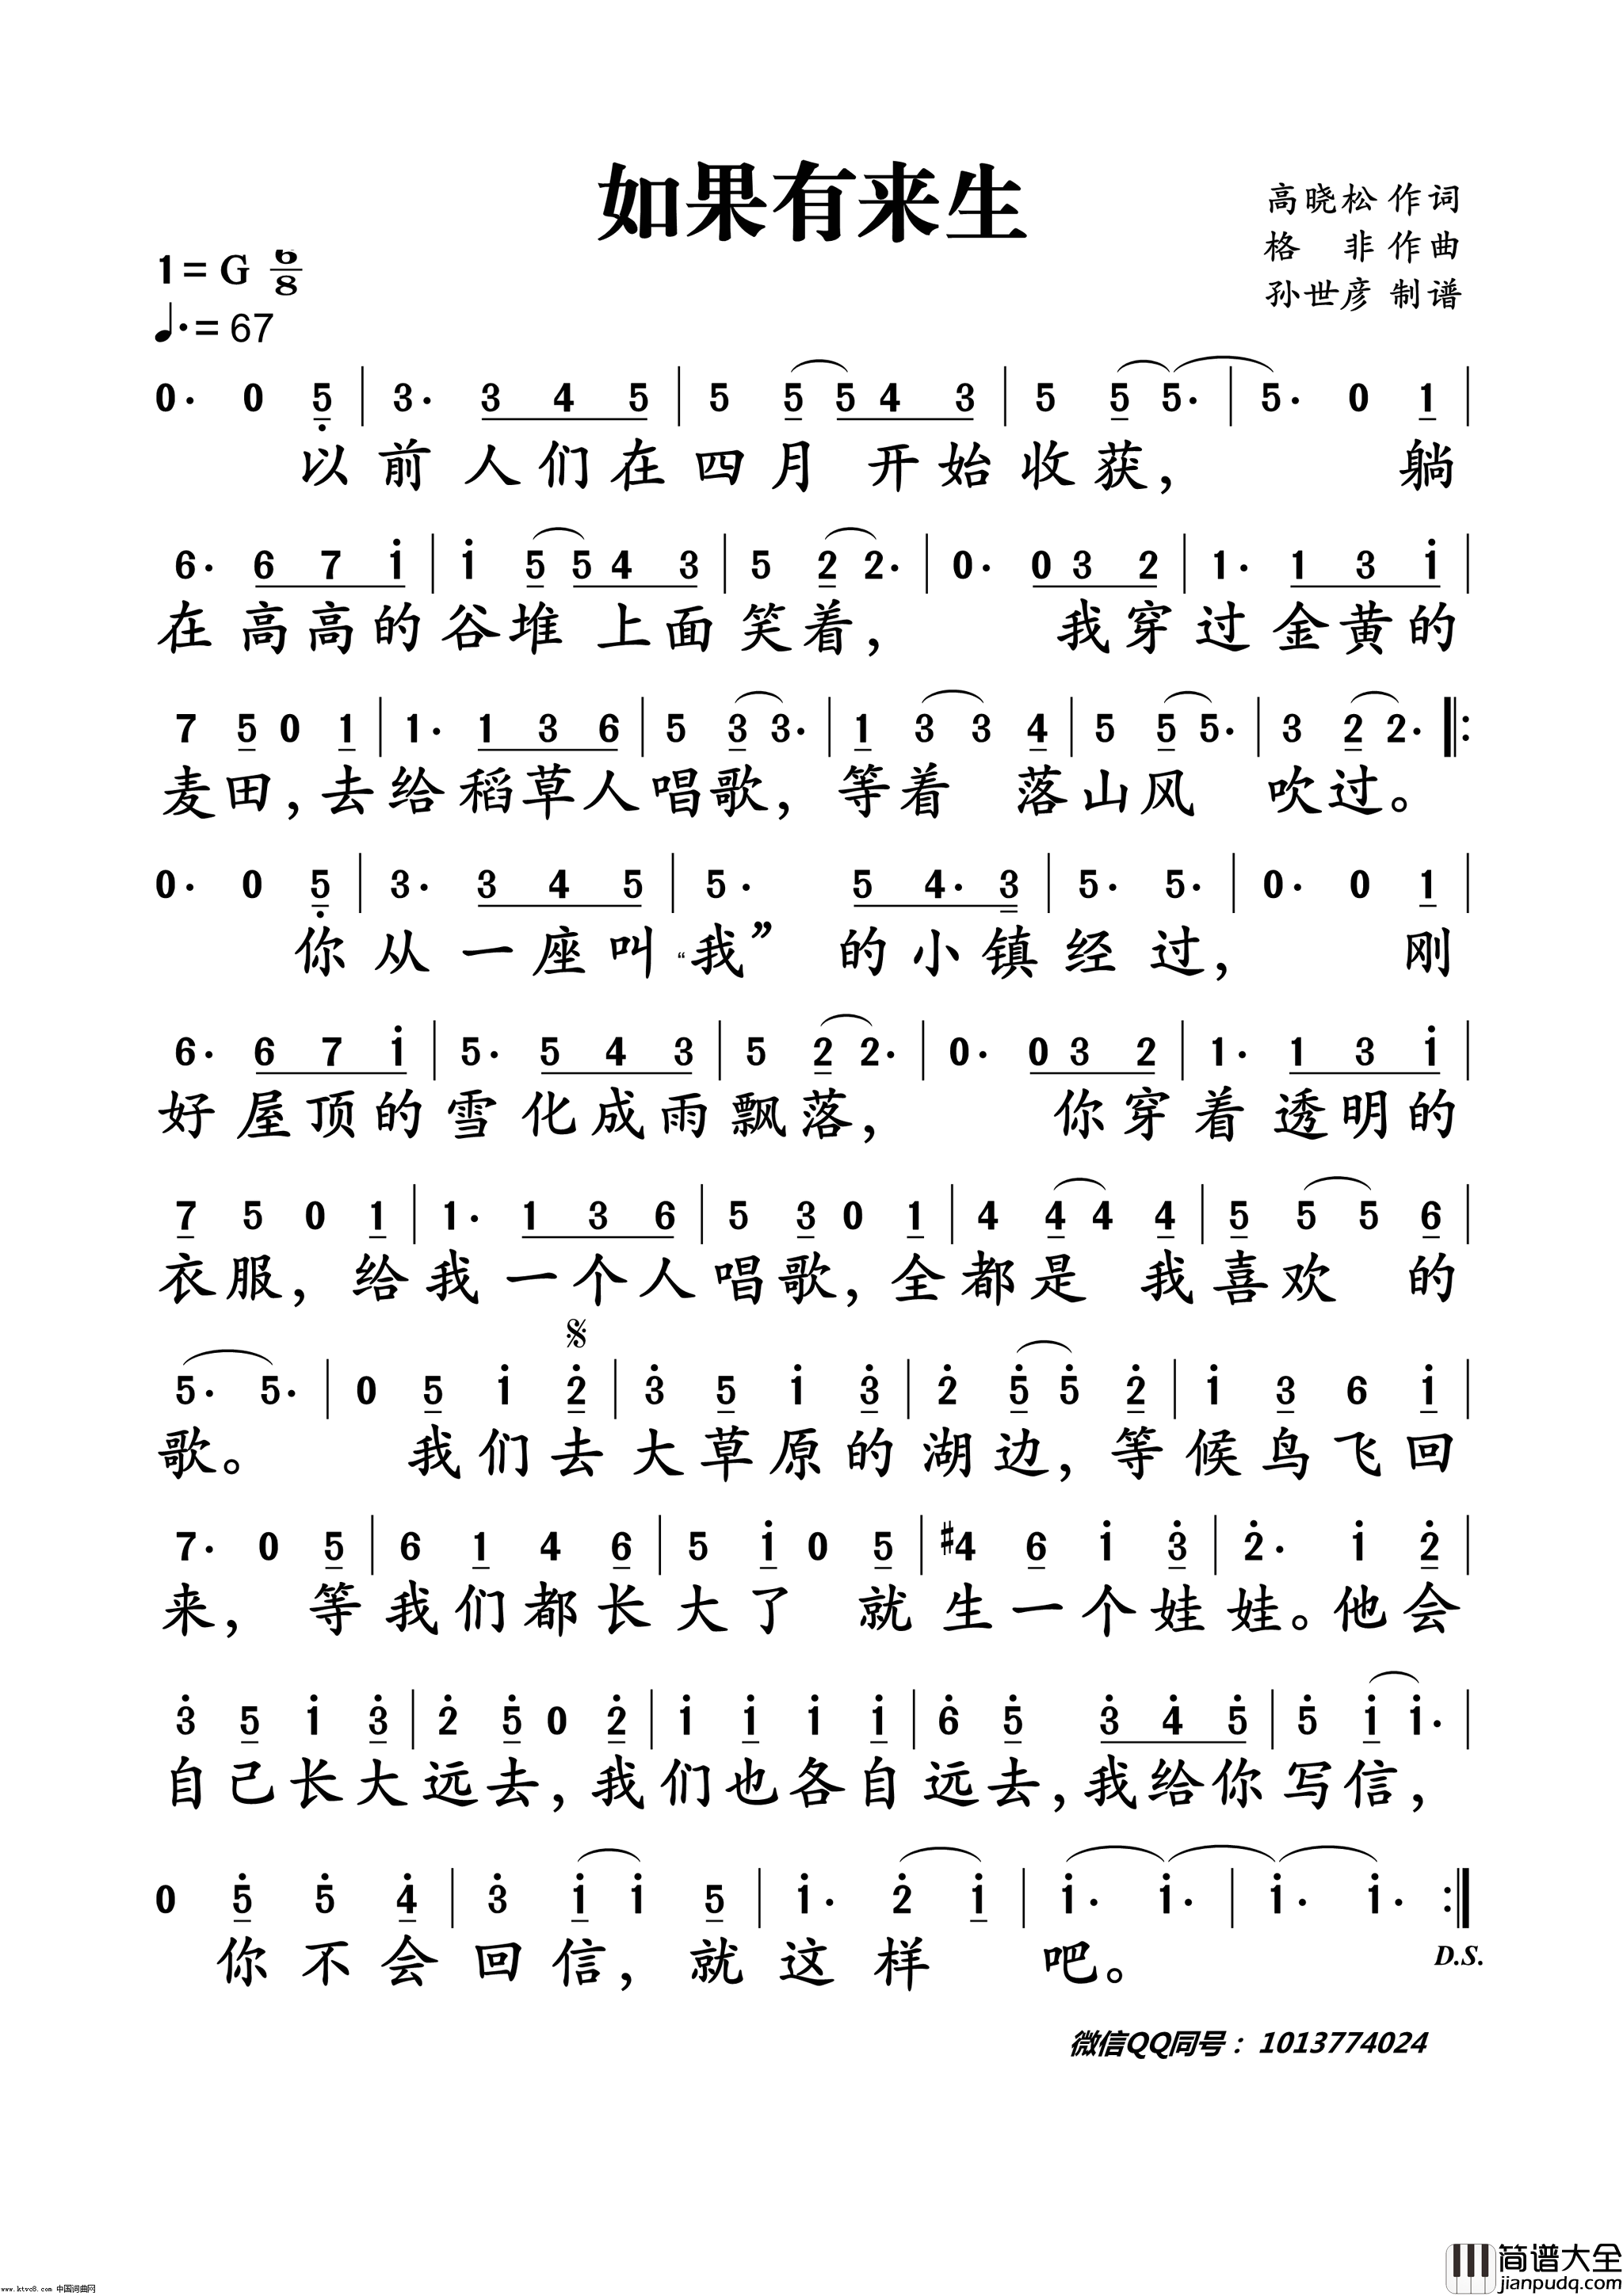 如果有来生
高晓松 作词
格 非 作曲
孙世彦 制谱
1= G 6/8
♩.= 67
0. 0 5 | 3. 3 4 5 | 5 5 5 4 3 | 5 5 5. | 5. 0 1 |
以前人们在四月开始收获, 躺
6. 6 7 1 | 1 5 5 4 3 | 5 2 2. | 0. 0 3 2 | 1. 1 3 1 |
在高高的谷堆上面笑着, 我穿过金黄的
7 5 0 1 | 1. 1 3 6 | 5 3 3. | 1 3 3 4 | 5 5 5. | 3 2 2. ‖:
麦田, 去给稻草人唱歌, 等着 落山风 吹过。
0. 0 5 | 3. 3 4 5 | 5. 5 4. 3 | 5. 5. | 0. 0 1 |
你从一座叫“我” 的小镇经过, 刚
6. 6 7 1 | 5. 5 4 3 | 5 2 2. | 0. 0 3 2 | 1. 1 3 1 |
好屋顶的雪化成雨飘落, 你穿着透明的
7 5 0 1 | 1. 1 3 6 | 5 3 0 1 | 4 4 4 4 | 5 5 5 6 |
衣服, 给我一个人唱歌, 全都是 我喜欢 的
5. 5. | 0 5 1 2 | 3 5 1 3 | 2 5 5 2 | 1 3 6 1 |
歌。 我们去大草原的湖边, 等候鸟飞回
7. 0 5 | 6 1 4 6 | 5 1 0 5 | #4 6 1 3 | 2. 1 2 |
来, 等我们都长大了 就生一个娃娃。他会
3 5 1 3 | 2 5 0 2 | 1 1 1 1 | 6 5 3 4 5 | 5 1 1. |
自己长大远去, 我们也各自远去, 我给你写信,
0 5 5 4 | 3 1 1 5 | 1. 2 1 | 1. 1. | 1. 1. :‖
你不会回信, 就这样 吧。
D.S.
微信QQ同号：1013774024
www.ktvc8.com 中国词曲网
简谱大全
jianpudq.com